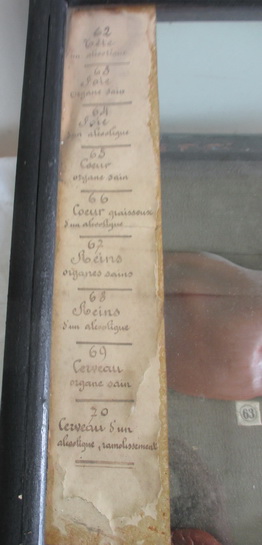 62
Tête
d'un alcoolique
63
Foie
organe sain
64
Foie
d'un alcoolique
65
Coeur
organe sain
66
Coeur graisseux
d'un alcoolique
67
Reins
organes sains
68
Reins
d'un alcoolique
69
Cerveau
organe sain
70
Cerveau d'un
alcoolique, ramolissement
63